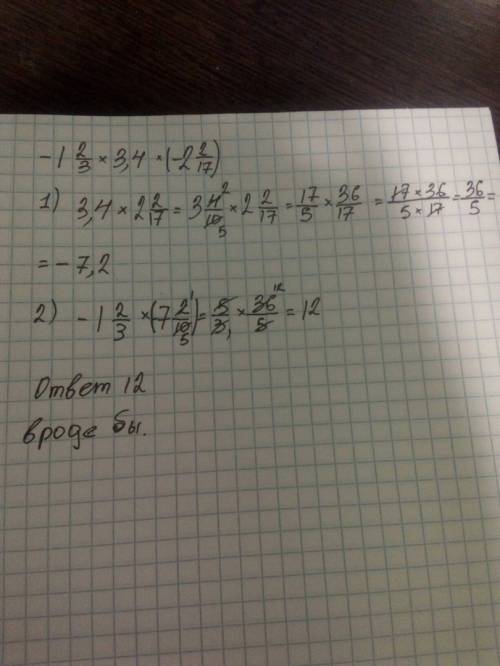 -1 2/3 × 3,4 × (-2 2/17)
1) 3,4 × 2 2/17 = 3 4²/10 5 × 2 2/17 = 17/5 × 36/17 = 17 × 36/5 × 17 = 36/5 =
= -7,2
2) -1 2/3 × (-7 2¹/10 5) = 5/3 1 × 36¹²/5 = 12
Ответ 12
вроде бы.